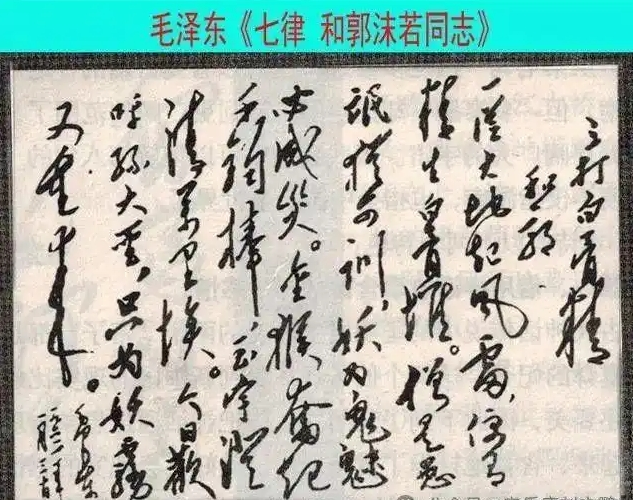 毛泽东《七律 和郭沫若同志》
三打白骨精
和郭
一从大地起风雷,便有
精生白骨堆。僧是愚
氓犹可训,妖为鬼蜮
必成灾。金猴奋起
千钧棒 玉宇澄
清万里埃。今日欢
呼孙大圣,只为妖雾
又重来。
毛泽东